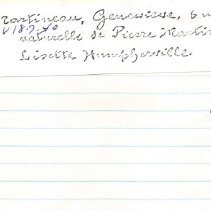 artineau, Genevieve, 6 m
naturelle de Pierre Martin
Lisette Humpherville